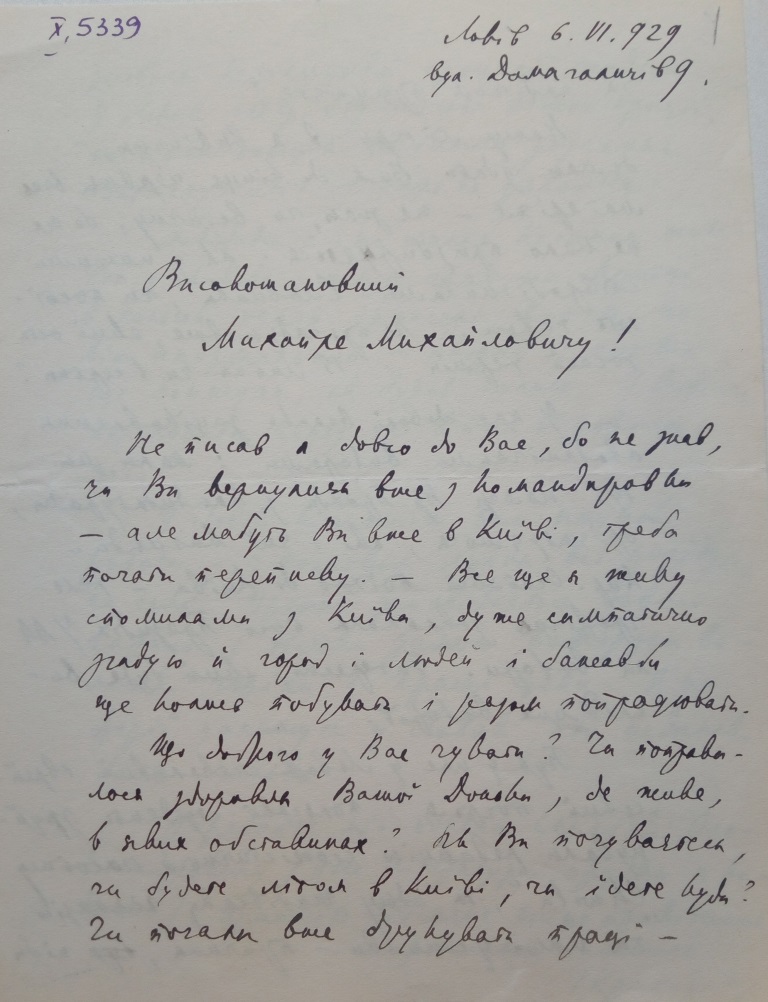 X, 5339
Львів 6. VI. 929
вул. Домагаличів 9.
Високошановний
Михайле Михайловичу!
Не писав я довго до Вас, бо не знав,
чи Ви вернулися вже з командировки
— але мабуть Ви вже в Київі, треба
почати переписку. — Все ще я живу
споминами з Київа, дуже симпатично
згадую й город і людей і бажав би
ще колись побувати і разом попрацювати.
Що доброго у Вас чувати? Чи поправи-
лося здоровля Вашої Доньки, де живе,
в яких обставинах? Як Ви почуваєтеся,
чи будете літом в Київі, чи їдете куди?
Чи почали вже друкувати праці —